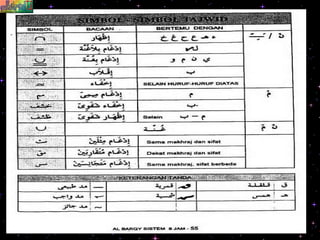 SIMBOL - SIMBOL TAJWID
SIMBOL BACAAN BERTEMU DENGAN
إظهار ء ه ع ح غ خ
إدغام بلاغنة ل ر
إدغام بغنة ي ن م و
إقلاب ب
إخفاء SELAIN HURUF-HURUF DIATAS
إدغام م
إخفاء شفوى ب
إظهار شفوى Selain م - ب
غنة
إدغام مثلين Sama makhraj dan sifat
إدغام متقاربين Dekat makhraj dan sifat
إدغام متجانسين Sama makhraj, sifat berbeda
KETERANGAN TANDA
مد طبيعى قمرية ق قلقلة
مد واجب شمسية همس
مد جائز
AL BARQY SISTEM 8 JAM - 55